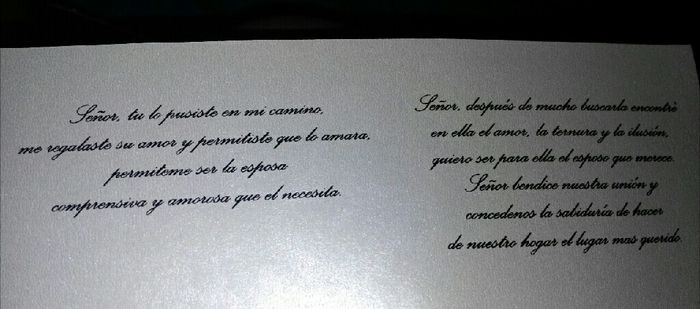 Señor, tu lo pusiste en mi camino,
me regalaste su amor y permitiste que lo amara,
permiteme ser la esposa
comprensiva y amorosa que el necesita.
Señor, después de mucho buscarla encontré
en ella el amor, la ternura y la ilusión,
quiero ser para ella el esposo que merece.
Señor bendice nuestra unión y
concedenos la sabiduría de hacer
de nuestro hogar el lugar mas querido.